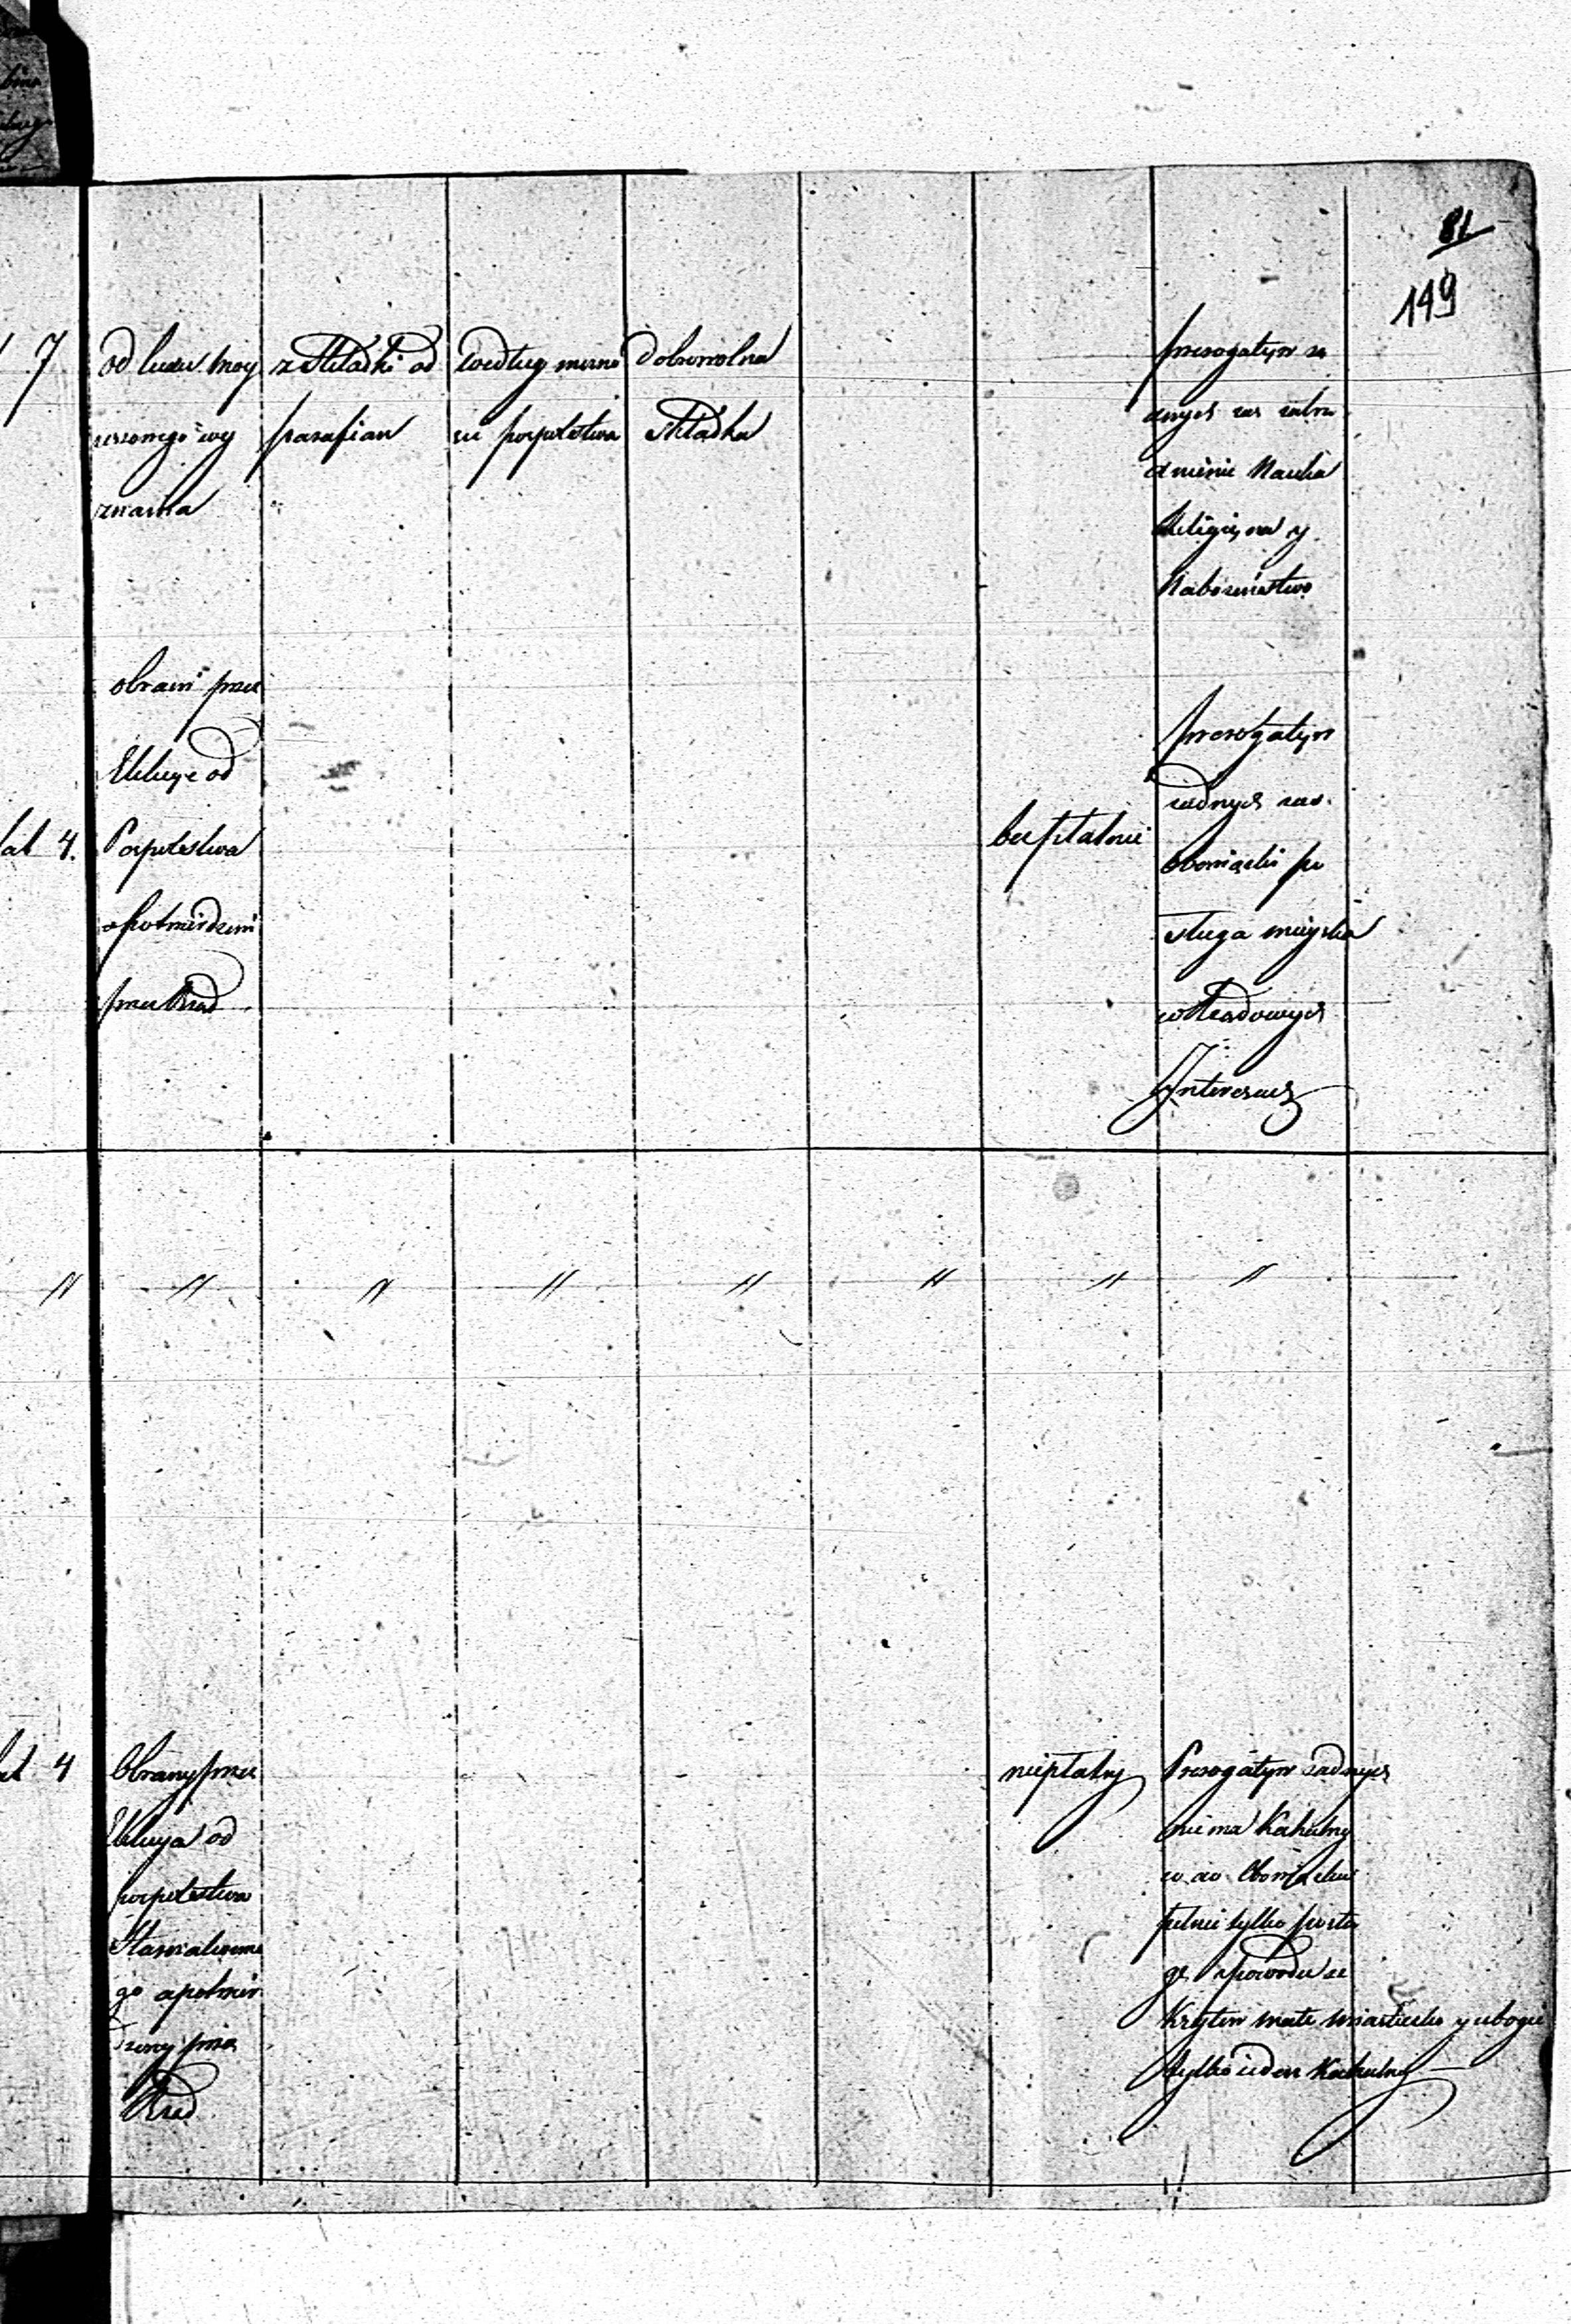 81
149
7
od ludu moy
zeszowego wy
znania
z Składki od
parafian
według mozno
sci pospolstwa
dobrowolna
składka
prerogatyw ża
dnych zas zatru
dnienie Nauka
Religiyna y
Nabożeństwo
lat 4.
obrani przez
Elekcye od
Pospolstwa
a potwierdzeni
przez Rząd
bezpłatnie
prerogatyw
żadnych zas
obowiązki po
sługa mieyska
w Rządowych
Interesach
" " " " " " " "
lat 4
Obrany przez
Elekcya od
pospolstwa
Starozakonne
go a potwier
dzony przez
Rząd
niepłatny
Prerogatyw żadnych
nie ma Kahalny
co do Obowiązku
pełnie tylko posłu
gę z powodu ze
Krytyn małe miasteczko y ubogie
tylko ieden Kahalny